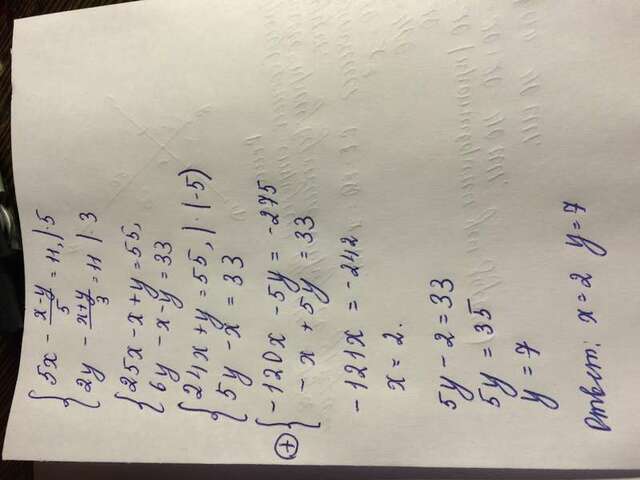 { 5x - (x-y)/5 = 11, | ·5
{ 2y - (x+y)/3 = 11 | ·3
{ 25x - x + y = 55,
{ 6y - x - y = 33
{ 24x + y = 55, | · (-5)
{ 5y - x = 33
{ -120x - 5y = -275
⊕ { - x + 5y = 33
-121x = -242
x = 2.
5y - 2 = 33
5y = 35
y = 7
Ответ: x = 2 y = 7